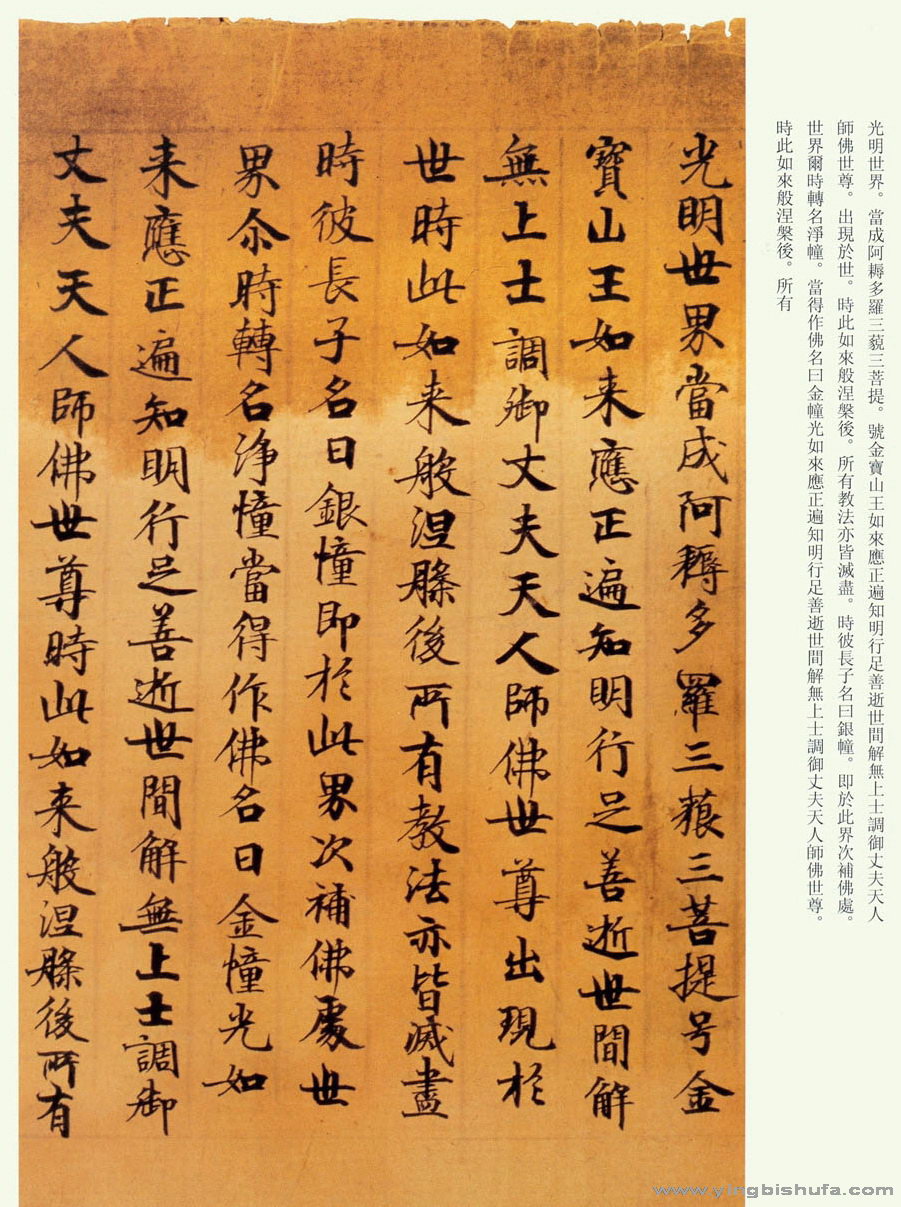 光明世界。當成阿耨多羅三藐三菩提。號金寶山王如來應正遍知明行足善逝世間解無上士調御丈夫天人
師佛世尊。出現於世。時此如來般涅槃後。所有教法亦皆滅盡。時彼長子名曰銀幢。即於此界次補佛處。
世界爾時轉名淨幢。當得作佛名曰金幢光如來應正遍知明行足善逝世間解無上士調御丈夫天人師佛世尊。
時此如來般涅槃後。所有
光明世界當成阿耨多羅三藐三菩提号金
寶山王如来應正遍知明行足善逝世間解
無上士調御丈夫天人師佛世尊出現於
世時此如来般涅槃後所有教法亦皆滅盡
時彼長子名曰銀幢即於此界次補佛處世
界尒時轉名淨幢當得作佛名曰金幢光如
来應正遍知明行足善逝世間解無上士調御
丈夫天人師佛世尊時此如来般涅槃後所有
www.yingbishufa.com